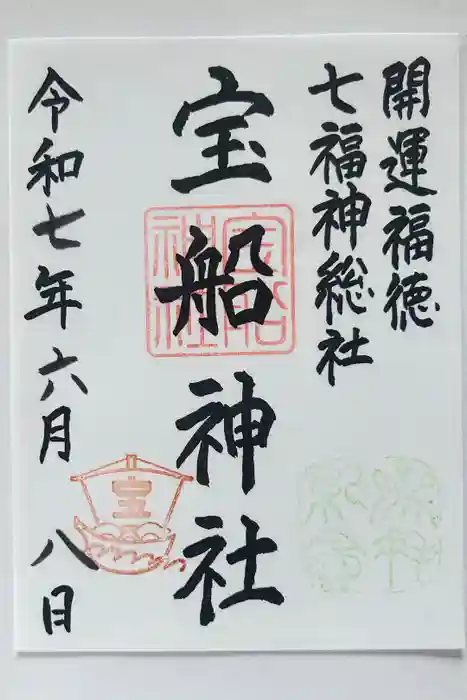 開運福徳
七福神総社
宝船神社
宝船
神社
宝
令和七年六月八日